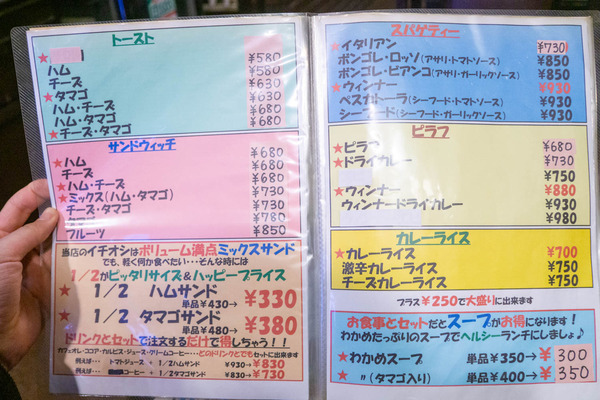 トースト
¥580
ハム ¥580
チーズ ¥630
★タマゴ ¥630
ハム・チーズ ¥680
ハム・タマゴ ¥680
★チーズ・タマゴ
サンドウィッチ
★ハム ¥680
チーズ ¥680
★ハム・チーズ ¥730
★ミックス(ハム・タマゴ) ¥730
チーズ・タマゴ ¥730
タマゴ ¥780
フルーツ ¥850
当店のイチオシはボリューム満点ミックスサンド
でも、軽く何か食べたい・・・そんな時には
1/2がピッタリサイズ&ハッピープライス
★ 1/2 ハムサンド
単品¥430→ ¥330
★ 1/2 タマゴサンド
単品¥480→ ¥380
ドリンクとセットで注文するだけで得しちゃう!!
カフェオレ・ココア・カルピス・ジュース・クリームコーヒー・・・どのドリンクとでもセットに出来ます
例えば・・・ トマトジュース + 1/2ハムサンド ¥930→ ¥830
例えば・・・ コーヒー + 1/2タマゴサンド ¥830→ ¥730
スパゲティー
★イタリアン ¥730
ボンゴレ・ロッソ(アサリ・トマトソース) ¥850
ボンゴレ・ビアンコ(アサリ・ガーリックソース) ¥850
★ウィンナー ¥930
ペスカトーラ(シーフード・トマトソース) ¥930
シーフード(シーフード・ガーリックソース) ¥930
ピラフ
★ピラフ ¥680
★ドライカレー ¥730
¥750
★ウィンナー ¥880
ウィンナードライカレー ¥930
¥980
カレーライス
★カレーライス ¥700
激辛カレーライス ¥750
チーズカレーライス ¥750
プラス¥250で大盛りに出来ます
お食事とセットだとスープがお得になります!
わかめたっぷりのスープでヘルシーランチにしましょ♪
★わかめスープ 単品¥350→ ¥300
★ 〃(タマゴ入り) 単品¥400→ ¥350